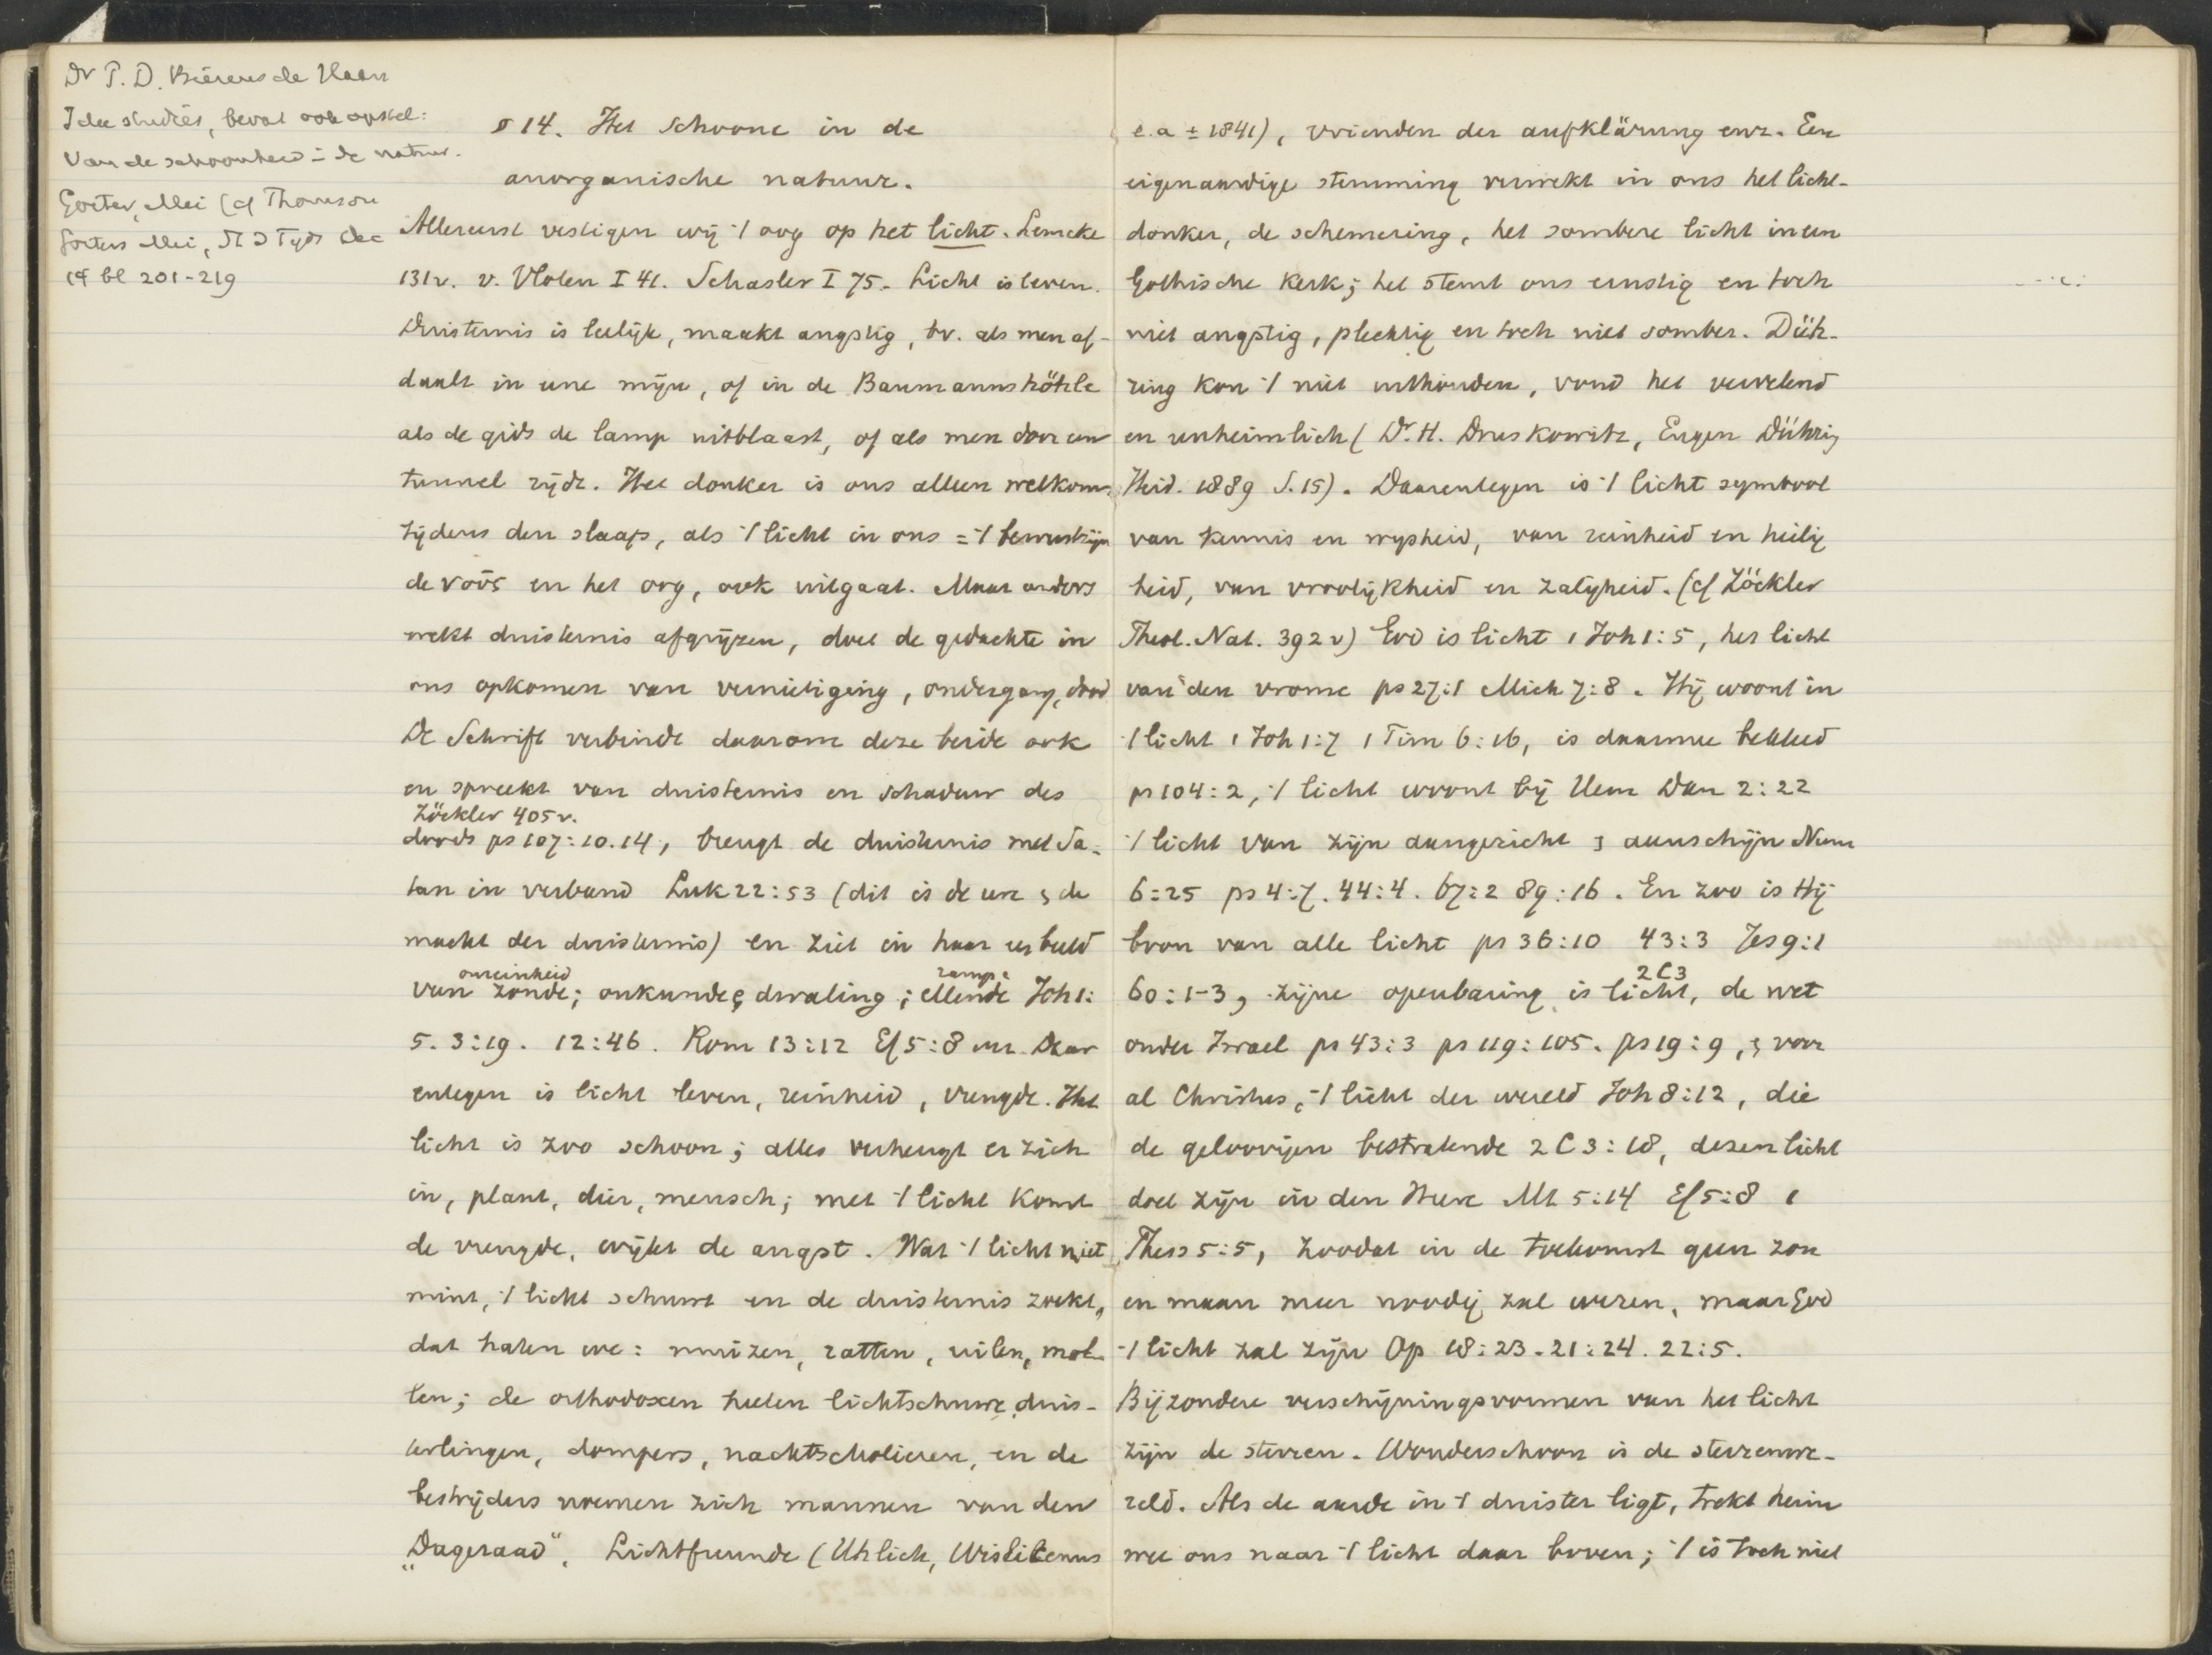 Dr P. D. Bierens de Haan
Idee studies, bevat ook opstel:
Van de schoonheid i de natuur.
Gorter, Mei (cf Thomson
Gorters Mei, N G Tyds Dec
14 bl 201-219
§ 14. Het Schoone in de
anorganische natuur.
Allereerst vestigen wij 't oog op het licht. Lemcke
131v. v. Vloten I 41. Schasler I 75. Licht is leven.
Duisternis is leelijk, maakt angstig, bv. als men af-
daalt in eene mijn, of in de Baumannshöhle
als de gids de lamp uitblaast, of als men door een
tunnel rijdt. Het donker is ons alleen welkom
tijdens den slaap, als 't licht in ons = 't bewustzijn
de νοῦς en het oog, ook uitgaat. Maar anders
wekt duisternis afgrijzen, doet de gedachte in
ons opkomen van vernietiging, ondergang, dood
De Schrift verbindt daarom deze beide ook
en spreekt van duisternis en schaduw des
Zöckler 405v.
doods ps 107:10.14, brengt de duisternis met Sa-
tan in verband Luk 22:53 (dit is de ure & de
macht der duisternis) en ziet in haar een beeld
onreinheid ramp:
van zonde; onkunde & dwaling; ellende Joh 1:
5. 3:19. 12:46. Rom 13:12 Ef 5:8 enz. Daar
entegen is licht leven, reinheid, vreugde. Het
licht is zoo schoon; alles verheugt er zich
in, plant, dier, mensch; met 't licht komt
de vreugde, wijkt de angst. Wat 't licht niet
mint, 't licht schuwt en de duisternis zoekt,
dat haten we: muizen, ratten, uilen, mol-
len; de orthodoxen heeten lichtschuwe duis-
terlingen, dompers, nachtscholieren, en de
bestrijders noemen zich mannen van den
„Dageraad". Lichtfreunde (Uhlich, Wislicenus
e.a ± 1841), vrienden der aufklärung enz. Een
eigenaardige stemming verwekt in ons het licht-
donker, de schemering, het sombere licht in een
Gothische kerk; het stemt ons ernstig en toch
niet angstig, plechtig en toch niet somber. Düh-
ring kon 't niet uithouden, vond het vervelend
en unheimlich (Dr. H. Druskowitz, Eugen Dühring
Heid. 1889 S. 15). Daarentegen is 't licht symbool
van kennis en wysheid, van reinheid en heilig
heid, van vroolijkheid en zaligheid. (cf Zöckler
Theol. Nat. 392v) God is licht 1 Joh 1:5, het licht
van den vrome ps 27:1 Mich 7:8. Hij woont in
't licht 1 Joh 1:7 1 Tim 6:16, is daarmee bekleed
ps 104:2, 't licht woont bij Hem Dan 2:22
't licht van zijn aangezicht & aanschijn Num
6:25 ps 4:7. 44:4. 67:2 89:16. En zoo is Hij
bron van alle licht ps 36:10 43:3 Jes 9:1
2 C 3
60:1-3, zijne openbaring is licht, de wet
onder Israel ps 43:3 ps 119:105. ps 19:9, & voor
al Christus, 't licht der wereld Joh 8:12, die
de geloovigen bestralende 2 C 3:18, dezen licht
doet zijn in den Heere Mt 5:14 Ef 5:8 1
Thess 5:5, zoodat in de toekomst geen zon
en maan meer noodig zal wezen, maar God
't licht zal zijn Op 18:23. 21:24. 22:5.
Bijzondere verschijningsvormen van het licht
zijn de sterren. Wonderschoon is de sterrenwe-
reld. Als de aarde in 't duister ligt, trekt heim
wee ons naar 't licht daar boven; 't is toch niet